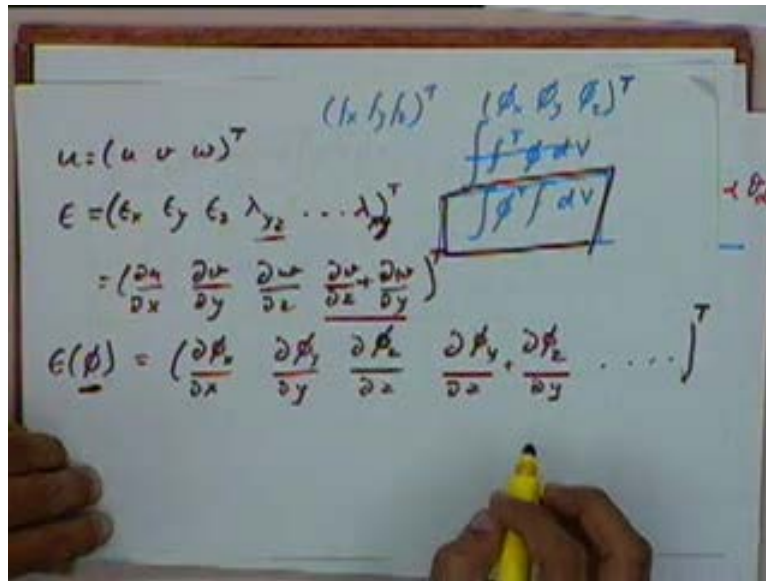 (fx fy fz)ᵀ (ϕx ϕy ϕz)ᵀ
u = (u v w)ᵀ
∫fᵀ ϕ dV
∫ϕᵀ f dV
ϵ = (ϵx ϵy ϵz λyz ... λxy)ᵀ
= (∂u/∂x ∂v/∂y ∂w/∂z ∂v/∂z + ∂w/∂y)ᵀ
ϵ(ϕ) = (∂ϕx/∂x ∂ϕy/∂y ∂ϕz/∂z ∂ϕy/∂z + ∂ϕz/∂y ....)ᵀ